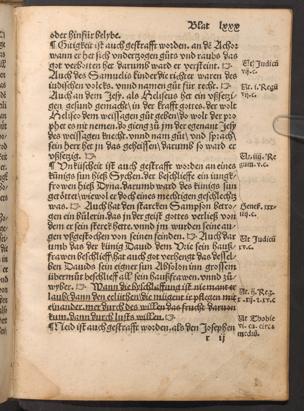 Blat lxxx
oder hinfür belybe.
¶ Gitigkeit ist auch gestrafft worden. an dē Achor
wann er het sich vndertzogen gůts vnd raubs das
got verbotten het darumb ward er versteint.
Auch des Samuelis kinder die richter waren des
iüdischen volcks. vnnd namen gůt für recht.
Auch an dem Jesi. als Heliseus het ein vssetzi-
gen gesund gemacht / in der krafft gottes. der wolt
Heliseo dem weissagen gůt geben / do wolt der pro
phet es nit nemen. do gieng zů jm der egenant Jesi
des weissagen knecht. vnnd nam gůt / vnd sprach /
sein herr het jn das geheissen / darumb so ward er
vssetzig.
¶ Vnküscheit ist auch gestrafft worden an eines
künigs sun hieß Sychen. der beschlieffe ein iungk-
frowen hieß Dyna. darumb ward des künigs sun
getötet / wiewol er doch eines mechtigen geschlechts
was. Auch hat der starck Sampson ber-
gen ein bůlerin. das jn der geist gottes verließ von
dem er sein sterck hett. vnd jm wurden seine au-
gen vßgestochen von seinen feinden. Auch dar
umb das der künig Dauid dem Vrie sein hauß-
frawen beschlieff / hat auch got verhengt das dessel-
ben Dauids sein eigner sun Absolon vm grossem
übermůt beschlieff all sein haußfrawen. vnnd zů
wyber. Wann die byschlaffung ist nieman er
laubt dann den eelüthen / die mügent ir pflegen mit
einander. mer durch des willen das frucht daruon
kum. dann durch lusts willen.
¶ Nied ist auch gestrafft worden. als den Josephen
r ij
Et Judicū
vij. c.
Et. i. Regū
viij. c.
Et. iiij. Re-
gum. v. c.
Genes. xxx-
iiij. c.
Ut Judicū
xv. c.
Ut. ij. Reg.
x. xij. z. xv. c.
Ut Thobie
vi. ca. circa
mediū.